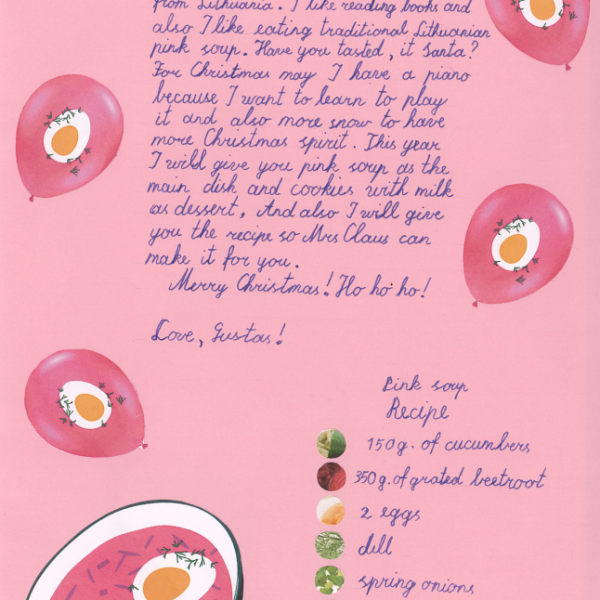 from Lithuania. I like reading books and
also I like eating traditional Lithuanian
pink soup. Have you tasted, it Santa?
For Christmas may I have a piano
because I want to learn to play
it and also more snow to have
more Christmas spirit. This year
I will give you pink soup as the
main dish and cookies with milk
as dessert, And also I will give
you the recipe so Mrs Claus can
make it for you.
Merry Christmas! Ho ho ho!
Love, Gustas!
Pink soup
Recipe
150 g. of cucumbers
350 g. of grated beetroot
2 eggs
dill
spring onions